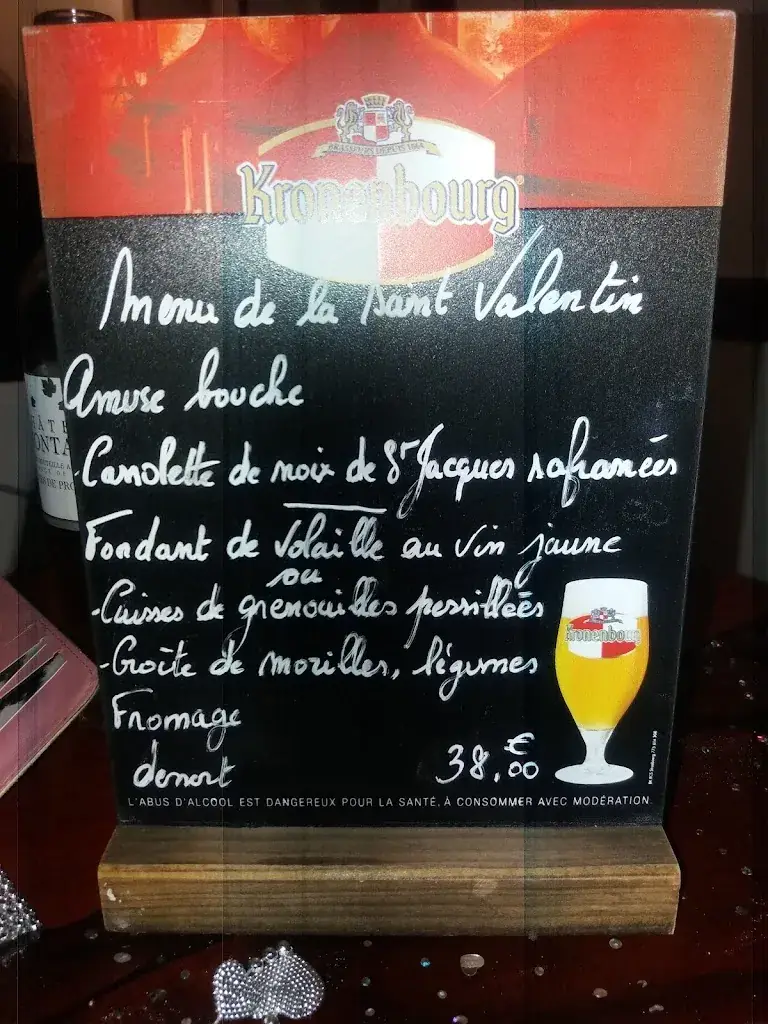 BRASSEURS DEPUIS 1664
Kronenbourg
Menu de la Saint Valentin
Amuse bouche
-Cassolette de noix de St Jacques safranées
Fondant de volaille au vin jaune
ou
-Cuisses de grenouilles persillées
-Croûte de morilles, légumes
Fromage
dessert
38,00 €
Kronenbourg
L'ABUS D'ALCOOL EST DANGEREUX POUR LA SANTÉ, À CONSOMMER AVEC MODÉRATION.